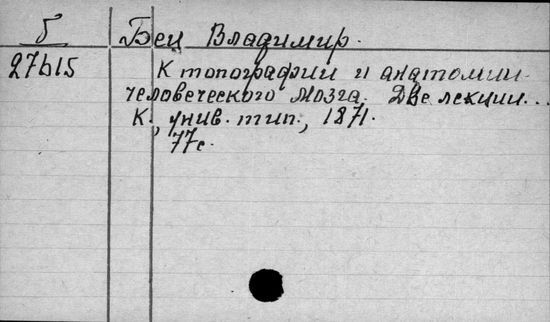 Б Бец Владимир.
27615 К топографии и анатомии
человеческого мозга. Две лекции...
К., унив. тип., 1871.
77с.